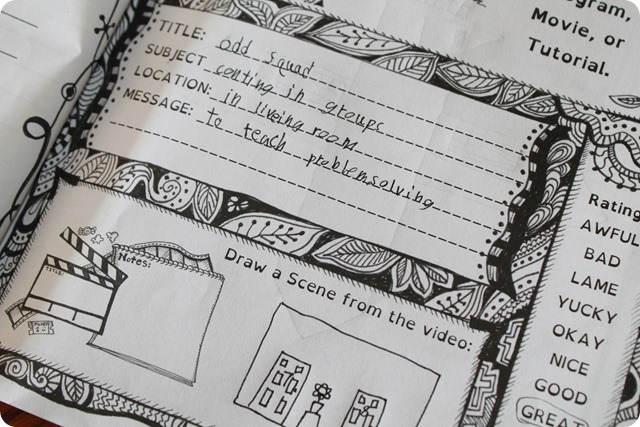 ogram,
Movie, or
Tutorial.
TITLE: odd squad
SUBJECT conting in groups
LOCATION: in liveing room
MESSAGE: to teach problemsolving
Notes:
TITLE:
Draw a Scene from the video:
Rating
AWFUL
BAD
LAME
YUCKY
OKAY
NICE
GOOD
GREAT